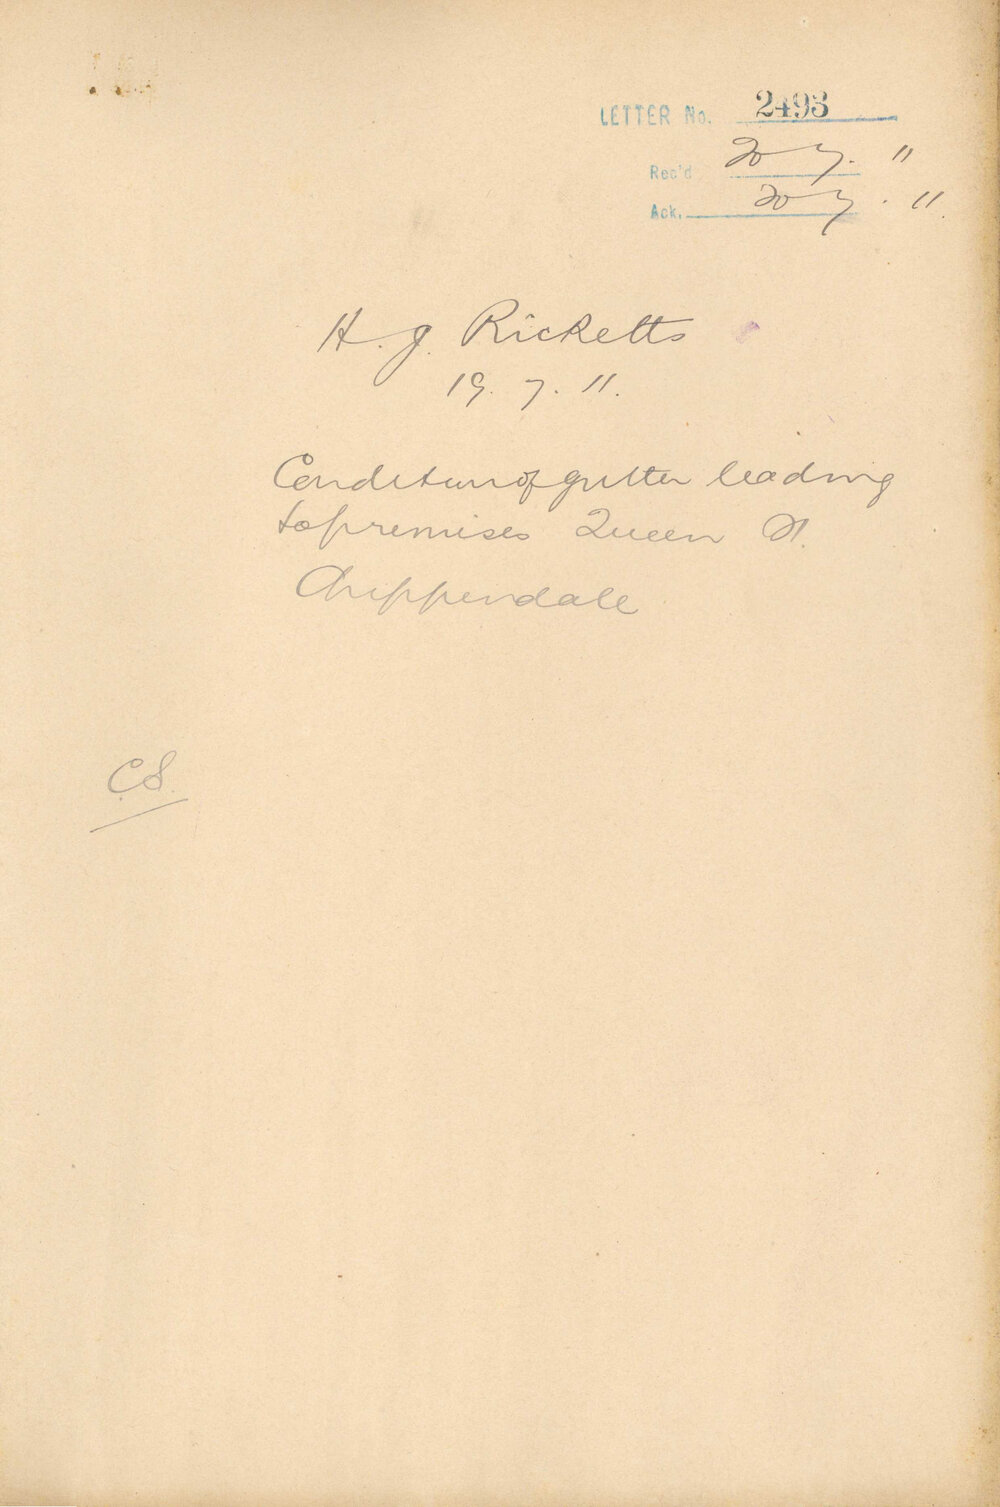 LETTER No. 2493
Rec'd 20 7. 11
Ack. 20 7. 11.
H. J. Ricketts
19. 7. 11.
Condition of gutter leading
to premises Queen St.
Chippendale
C.S.